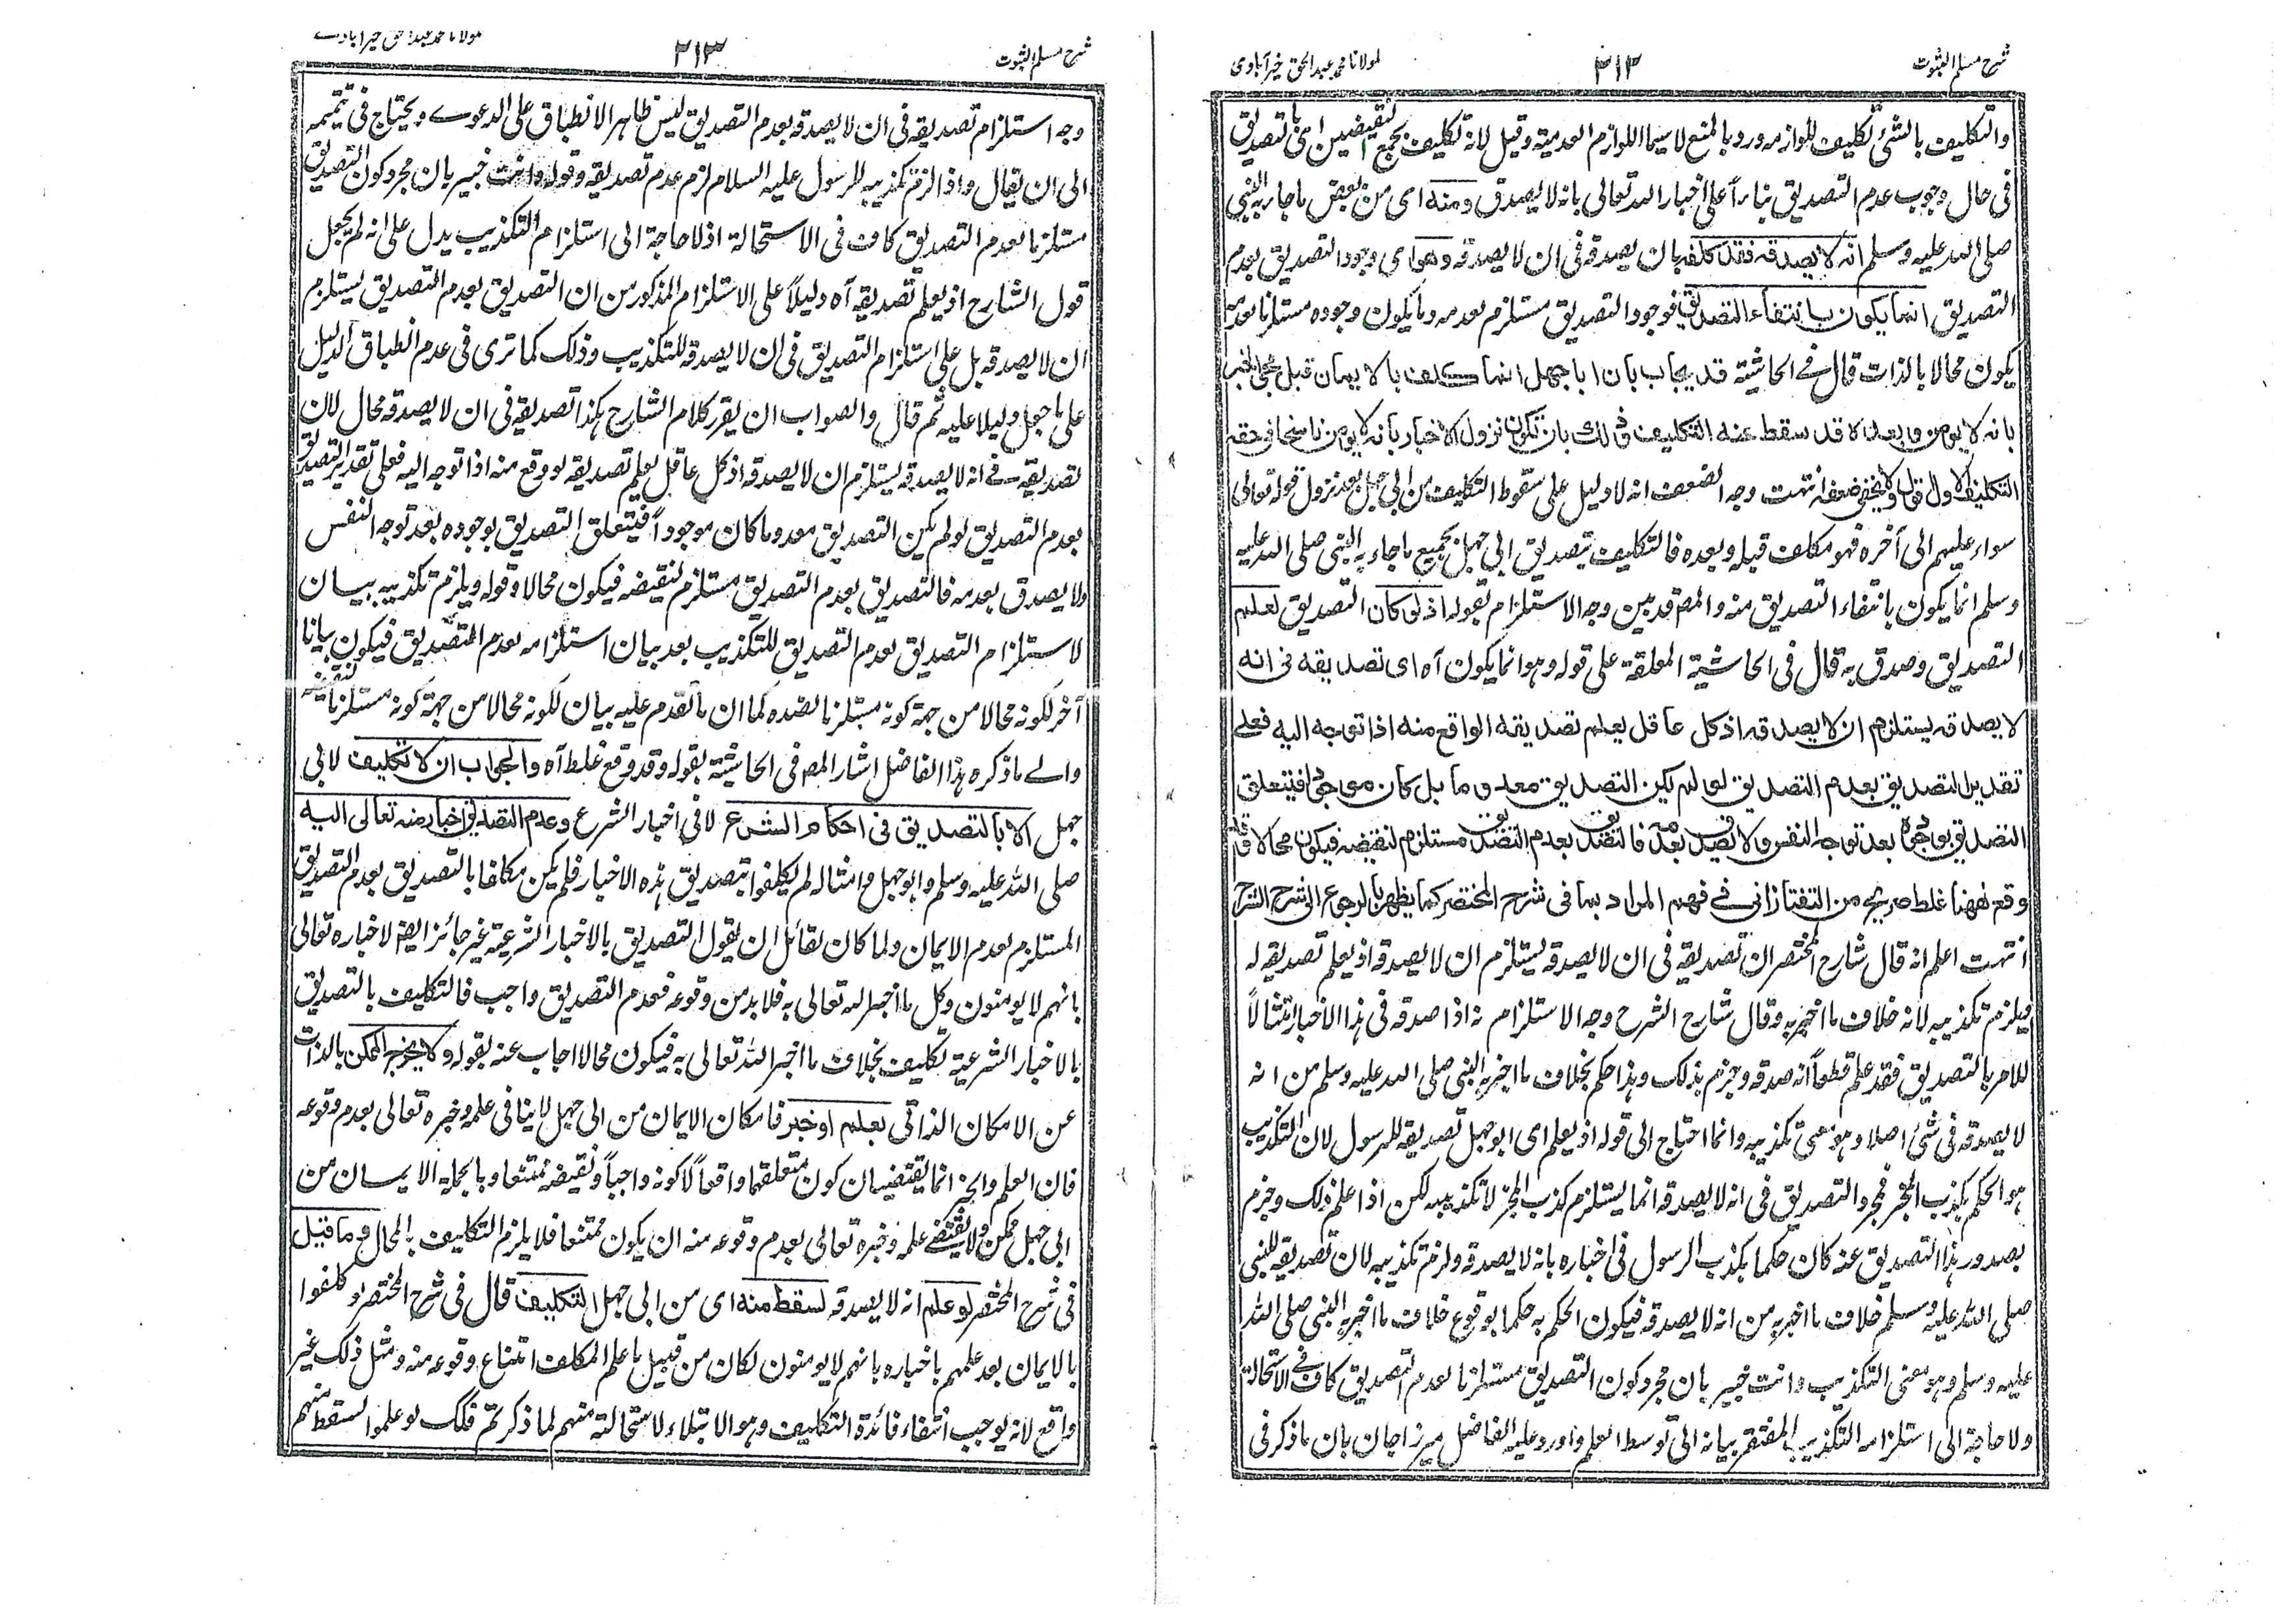 شرح مسلم الثبوت
٢١٢
مولانا محمد عبدالحق خیرآبادی
والتکلیف بالشئ تکلیف للوازمه ورد بالمنع لا سیما اللوازم العدمیة وقیل لانه تکلیف بجمع النقیضین ای بالتصدیق
فی حال وجوب عدم التصدیق بناءاً علی اخبار الله تعالی بانه لا یصدق ومنه ای من بعض ما جاء به النبی
صلی الله علیه وسلم انه لا یصدقه فقد کلفه بان یصدقه فی ان لا یصدقه وهو ای وجود التصدیق بعدم
التصدیق انما یکون بانتفاء التصدیق فوجود التصدیق مستلزم بعدمه وما یکون وجوده مستلزما بعدمه
یکون محالا بالذات قال فی الحاشیة قد یجاب بان ابا جهل انما کلف بالایمان قبل الخبر
بانه لا یومن وبعدہ لا قد سقط عنه التکلیف وذلك بان تکون نزول الاخبار بانه لا یومن ناسخا فی حقه
التکلیف الاول قول ولا یخفی ضعفه انتهت وجه الضعف انه لا دلیل علی سقوط التکلیف من ابی جهل بعد نزول قوله تعالی
سواء علیهم الی آخره فهو مکلف قبله وبعده فالتکلیف بتصدیق ابی جهل بجمیع ما جاء به النبی صلی الله علیه
وسلم انما یکون بانتفاء التصدیق منه والمص قد بین وجه الاستلزام بقوله اذ لو کان التصدیق لعلم
التصدیق وصدق به قال فی الحاشیة المعلقة علی قوله وهو انما یکون آه ای تصدیقه فی انه
لا یصدقه یستلزم ان لا یصدقه اذ کل عاقل یعلم تصدیقه الواقع منه اذا توجه الیه فعلی
تقدیر التصدیق بعدم التصدیق لو لم یکن التصدیق معدوما بل کان موجودا فیتعلق
التصدیق بوجوده بعد توجه النفس ولا تصدیق بعدمه فالتصدیق بعدم التصدیق مستلزم لنقیضه فیکون محالا وقد
وقع ههنا غلط صریح من التفتازانی فی فهم المراد بما فی شرح المختصر کما یظهر بالرجوع الی شرح الشرح
انتهت اعلم انه قال شارح المختصر ان تصدیقه فی ان لا یصدقه یستلزم ان لا یصدقه اذ یعلم تصدیقه له
فیلزم تکذیبه لانه خلاف ما اخبر به وقال شارح الشرح وجه الاستلزام انه اذا صدقه فی هذا الاخبار امتثالاً
للامر بالتصدیق فقد علم قطعاً انه صدقه وجزم بذلک وهذا حکم بخلاف ما اخبر به النبی صلی الله علیه وسلم من انه
لا یصدقه فی شئ اصلا وهو معنی تکذیبه وانما احتاج الی قوله اذ یعلم ای ابو جهل تصدیقه للرسول لان التکذیب
هو الحکم بکذب المخبر فمجرد التصدیق فی انه لا یصدقه انما یستلزم کذب المخبر لا تکذیبه لکن اذا علم ذلک وجزم
بصدور هذا التصدیق عنه کان حکما بکذب الرسول فی اخباره بانه لا یصدقه ولزم تکذیبه لان تصدیقه للنبی
صلی الله علیه وسلم خلاف ما اخبر به من انه لا یصدقه فیکون الحکم به حکما بوقوع خلاف ما اخبر به النبی صلی الله
علیه وسلم وهو معنی التکذیب وانت خبیر بان مجرد کون التصدیق مستلزما لعدم التصدیق کاف فی الاستحالة
ولا حاجة الی استلزامه التکذیب المفتقر بیانه الی توسط العلم واورد علیه الفاضل میرزاجان بان ما ذکر فی
شرح مسلم الثبوت
٢١٣
مولانا محمد عبدالحق خیرآبادی
وجه استلزام تصدیقه فی ان لا یصدقه بعدم التصدیق لیس ظاهر الانطباق علی الدعوے ویحتاج فی تتمیمه
الی ان یقال واذا لزم تکذیبه للرسول علیه السلام لزم عدم تصدیقه وقوله وانت خبیر بان مجرد کون التصدیق
مستلزما بعدم التصدیق کاف فی الاستحالة اذ لا حاجة الی استلزام التکذیب یدل علی انه لم یجعل
قول الشارح اذ یعلم تصدیقه آه دلیلاً علی الاستلزام المذکور من ان التصدیق بعدم التصدیق یستلزم
ان لا یصدقه بل علی استلزام التصدیق فی ان لا یصدقه للتکذیب وذلک کما تری فی عدم انطباق الدلیل
علی ما جعل دلیلا علیه ثم قال والصواب ان یقرر کلام الشارح هکذا تصدیقه فی ان لا یصدقه محال لان
تصدیقه فی انه لا یصدقه یستلزم ان لا یصدقه اذ کل عاقل یعلم تصدیقه لو وقع منه اذا توجه الیه فعلی تقدیر التصدیق
بعدم التصدیق لو لم یکن التصدیق معدوما کان موجوداً فیتعلق التصدیق بوجوده بعد توجه النفس
ولا یصدق بعدمه فالتصدیق بعدم التصدیق مستلزم لنقیضه فیکون محالا وقوله ویلزم تکذیبه بیان
لاستلزام التصدیق بعدم التصدیق للتکذیب بعد بیان استلزامه بعدم التصدیق فیکون بیانا
آخر لکونه محالا من جهة کونه مستلزما لضده کما ان ما تقدم علیه بیان لکونه محالا من جهة کونه مستلزما لنقیضه
والے ما ذکره هذا الفاضل اشار المص فی الحاشیة بقوله وقد وقع غلط آه والجواب ان لا تکلیف لابی
جهل الا بالتصدیق فی احکام الشرع لا فی اخبار الشرع وعدم التصدیق اخبار منه تعالی الیه
صلی الله علیه وسلم وابو جهل وامثاله لم یکلفوا بتصدیق هذه الاخبار فلم یکن مکلفا بالتصدیق بعدم التصدیق
المستلزم بعدم الایمان ولما کان لقائل ان یقول التصدیق بالاخبار الشرعیة غیر جائز ایضا لاخباره تعالی
بانهم لا یومنون وکل ما اخبر الله تعالی به فلا بد من وقوعه فعدم التصدیق واجب فالتکلیف بالتصدیق
بالاخبار الشرعیة تکلیف بخلاف ما اخبر الله تعالی به فیکون محالا اجاب عنه بقوله ولا یخرج الممکن بالذات
عن الامکان الذاتی بعلم او خبر فامکان الایمان من ابی جهل لا ینافی علمه وخبره تعالی بعدم وقوعه
فان العلم والخبر انما یقتضیان کون متعلقهما واقعاً لا کونه واجباً ونقیضه ممتنعا وبالجملة الایمان من
ابی جهل ممکن ولا یقتضی علمه وخبره تعالی بعدم وقوعه منه ان یکون ممتنعا فلا یلزم التکلیف بالمحال وما قیل
فی شرح المختصر لو علم انه لا یصدقه لسقط منه ای من ابی جهل التکلیف قال فی شرح المختصر لو کلفوا
بالایمان بعد علمهم باخباره بانهم لا یومنون لکان من قبیل ما علم المکلف امتناع وقوعه منه ومثل ذلک غیر
واقع لانه یوجب انتفاء فائدة التکلیف وهو الابتلاء لاستحالته منهم لما ذکر تم فلک لو علموا السقط منهم